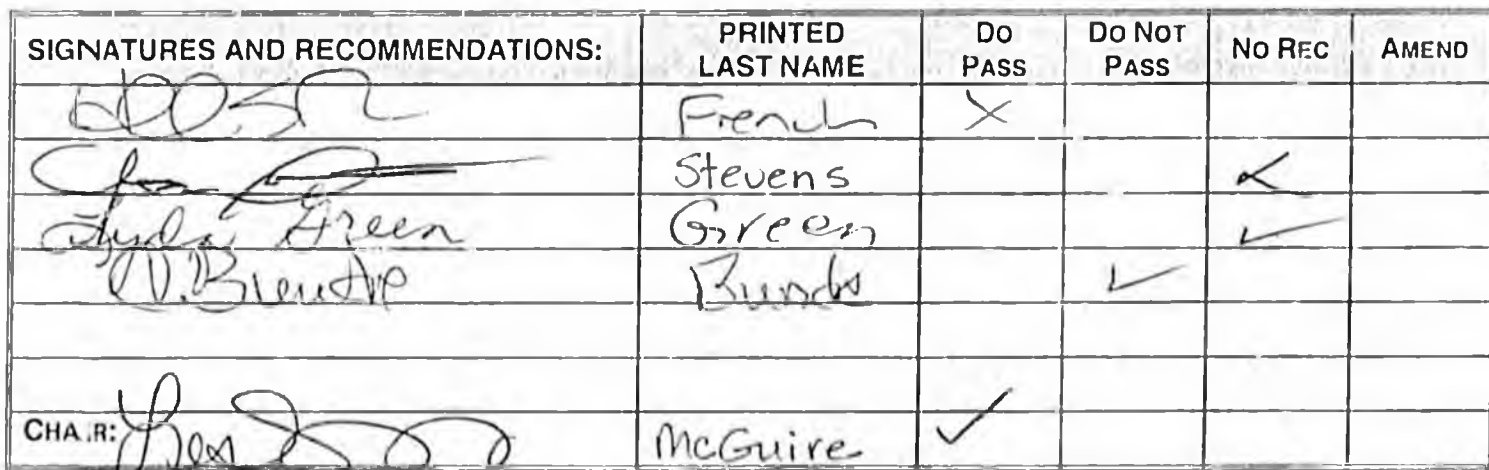 SIGNATURES AND RECOMMENDATIONS: PRINTED LAST NAME DO PASS DO NOT PASS NO REC AMEND
French X
Stevens
Lyda Green Green ✓
Bunde ✓
CHAIR: McGuire ✓